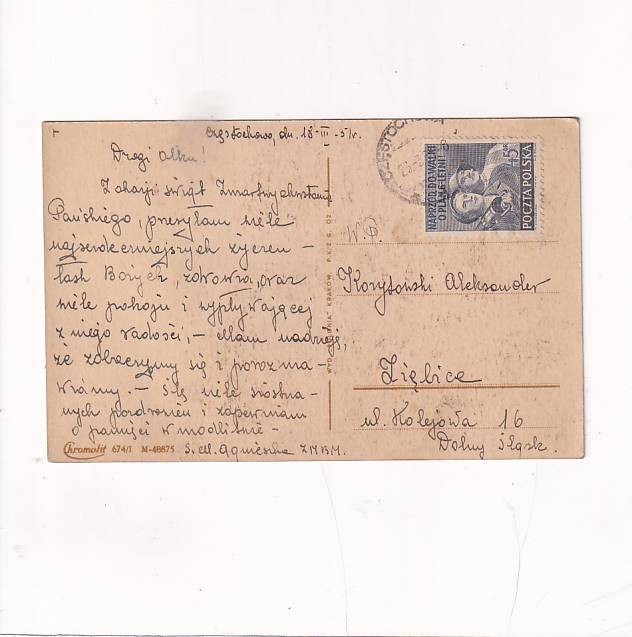 Częstochowa, dn. 18-III-51r.
Drogi Olku!
Z okazji świąt Zmartwychwstania
Pańskiego, przesyłam wiele
najserdeczniejszych życzeń –
łask Bożych, zdrowia, oraz
wiele pokoju i wypływającej
z niego radości, – Mam nadzieję,
że zobaczymy się i porozma-
wiamy. – Ślę wiele siostrza-
nych pozdrowień i zapewniam
o pamięci w modlitwie –
S. M. Agnieszka ZMBM.
Chromolit 674/I M-48875
CZĘSTOCHOWA
NAPRZÓD DO WALKI
O PLAN 6 LETNI
45 GR
+15
POCZTA POLSKA
P.W.
Korytowski Aleksander
Ziębice
ul. Kolejowa 16
Dolny Śląsk.